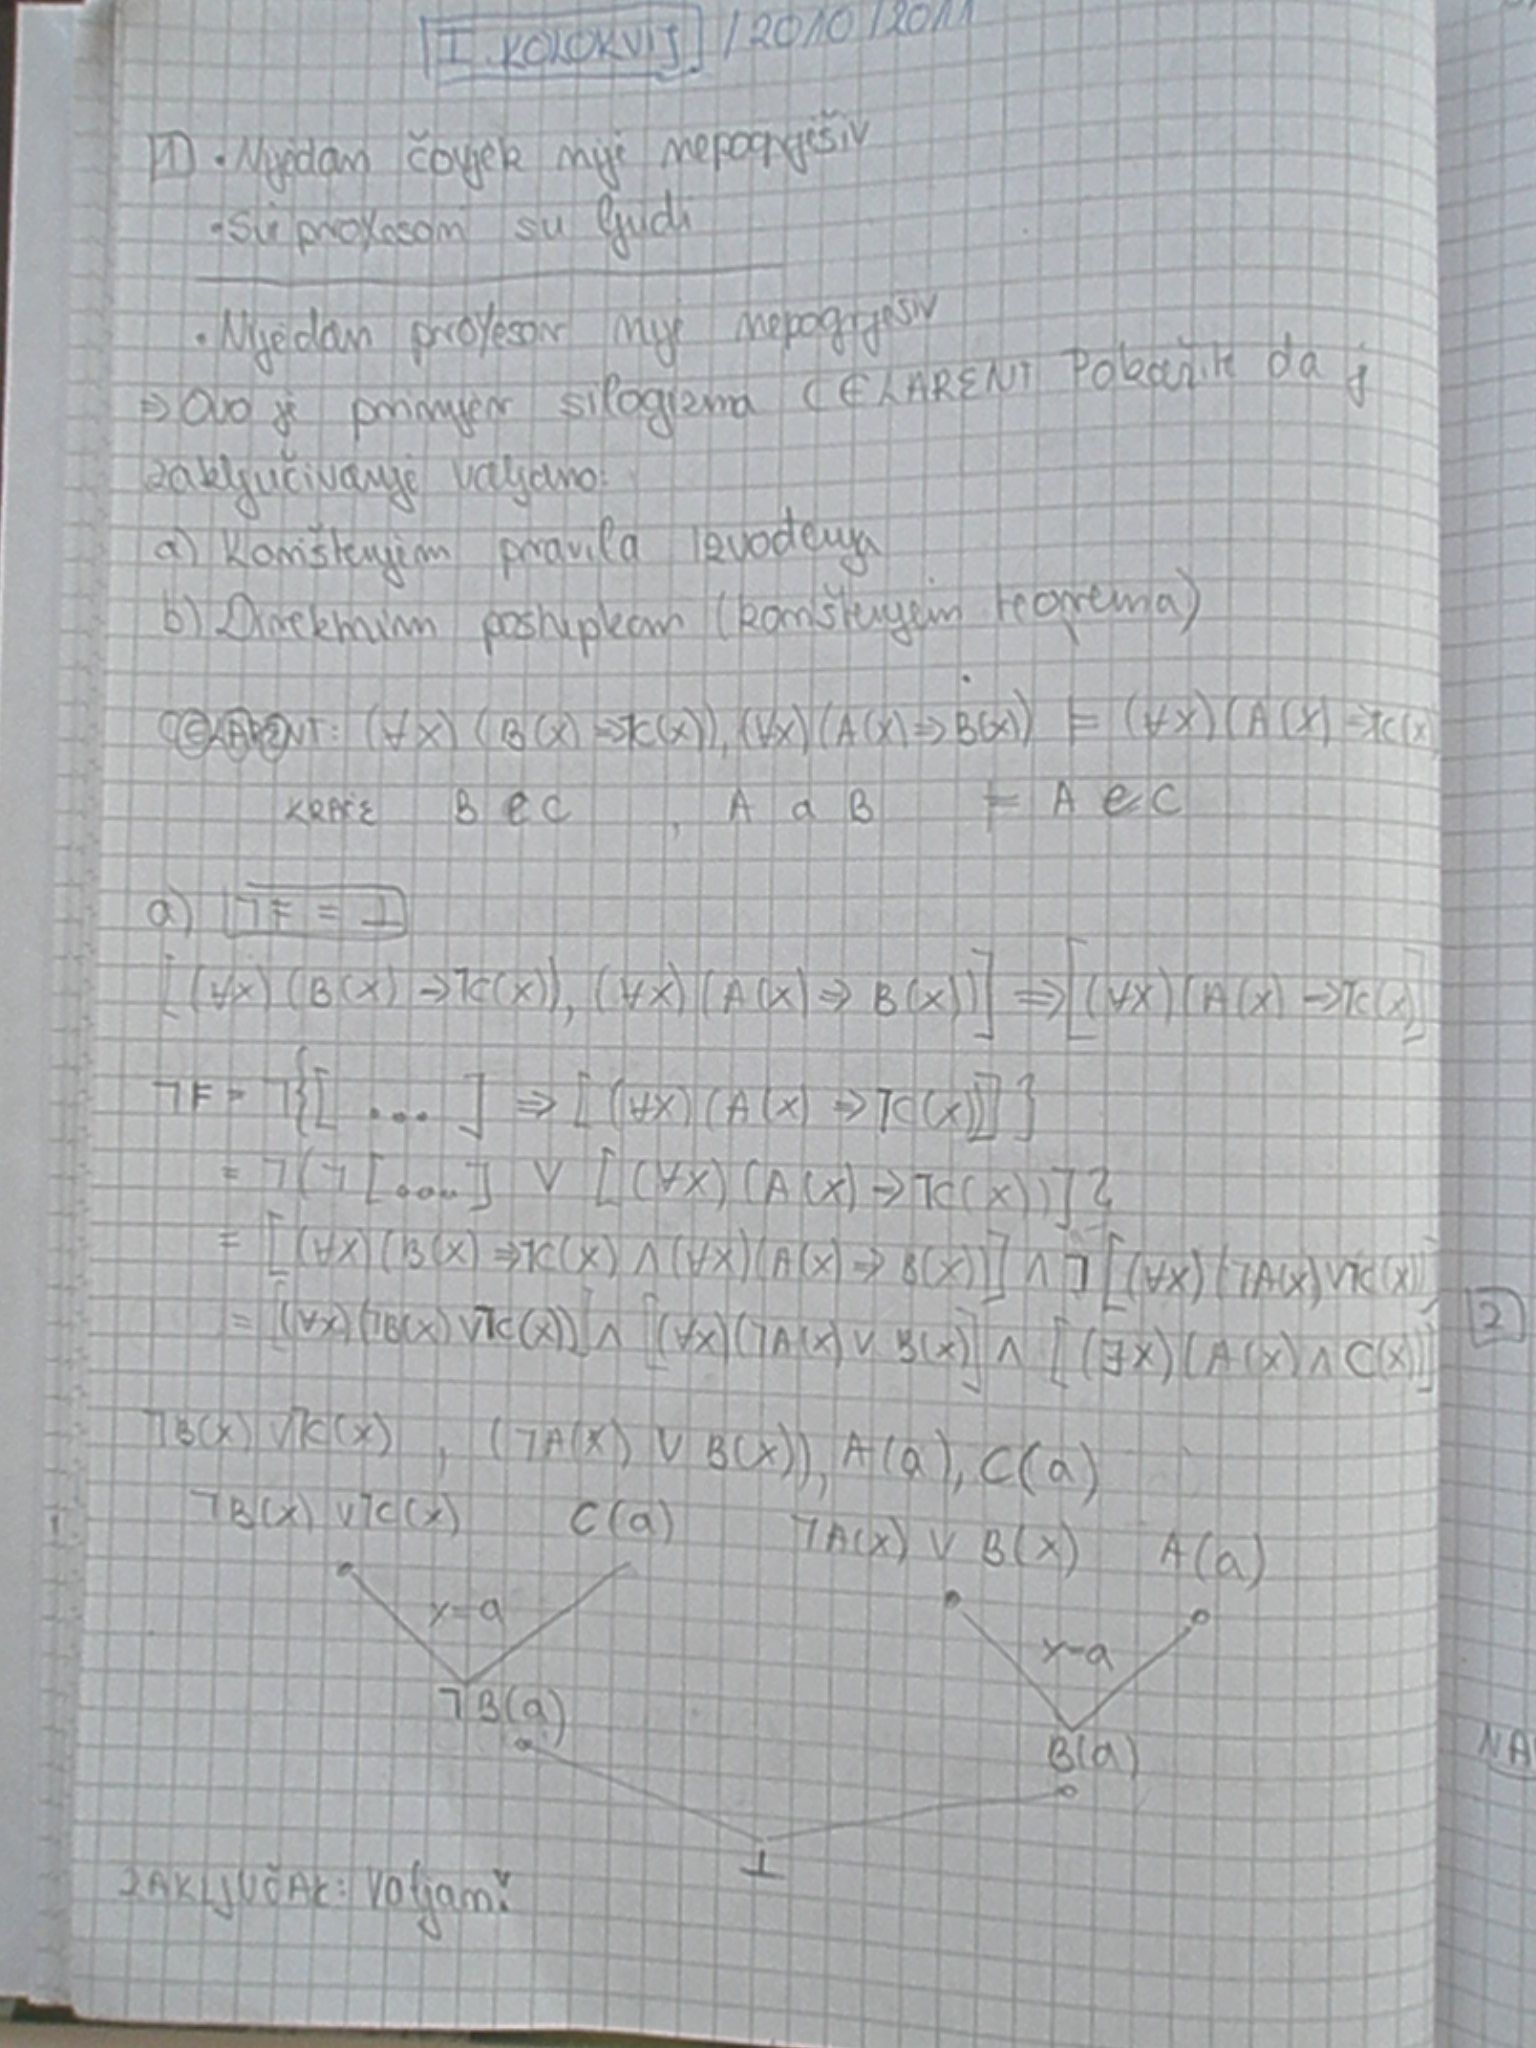 I. KOLOKVIJ /2010/2011
1 • Nijedan čovjek nije nepogrješiv
• Svi profesori su ljudi
• Nijedan profesor nije nepogrješiv
⇒ Ovo je primjer silogizma CELARENT Pokažite da j
zaključivanje valjano:
a) Korištenjem pravila izvođenja
b) Direktnim postupkom (korištenjem teorema)
CELARENT: (∀x)(B(x)⇒¬C(x)), (∀x)(A(x)⇒B(x)) ⊨ (∀x)(A(x)⇒¬C(x)
KRAĆE B e C , A a B ⊨ A e C
a) ¬F = ⊥
[(∀x)(B(x)→¬C(x)), (∀x)(A(x)⇒B(x))] ⇒ [(∀x)(A(x)→¬C(x)]
¬F = ¬{[ ... ] ⇒ [(∀x)(A(x)⇒¬C(x))]}
= ¬{¬[....] ∨ [(∀x)(A(x)→¬C(x))]}
= [(∀x)(B(x)⇒¬C(x) ∧ (∀x)(A(x)⇒B(x))] ∧ ¬[(∀x)(¬A(x)∨¬C(x))]
= [(∀x)(¬B(x)∨¬C(x))] ∧ [(∀x)(¬A(x)∨B(x)] ∧ [(∃x)(A(x)∧C(x))]
2
¬B(x)∨¬C(x) , (¬A(x)∨B(x)), A(a), C(a)
¬B(x)∨¬C(x) C(a) ¬A(x)∨B(x) A(a)
x=a x=a
¬B(a) B(a)
NA
⊥
ZAKLJUČAK: Valjan!